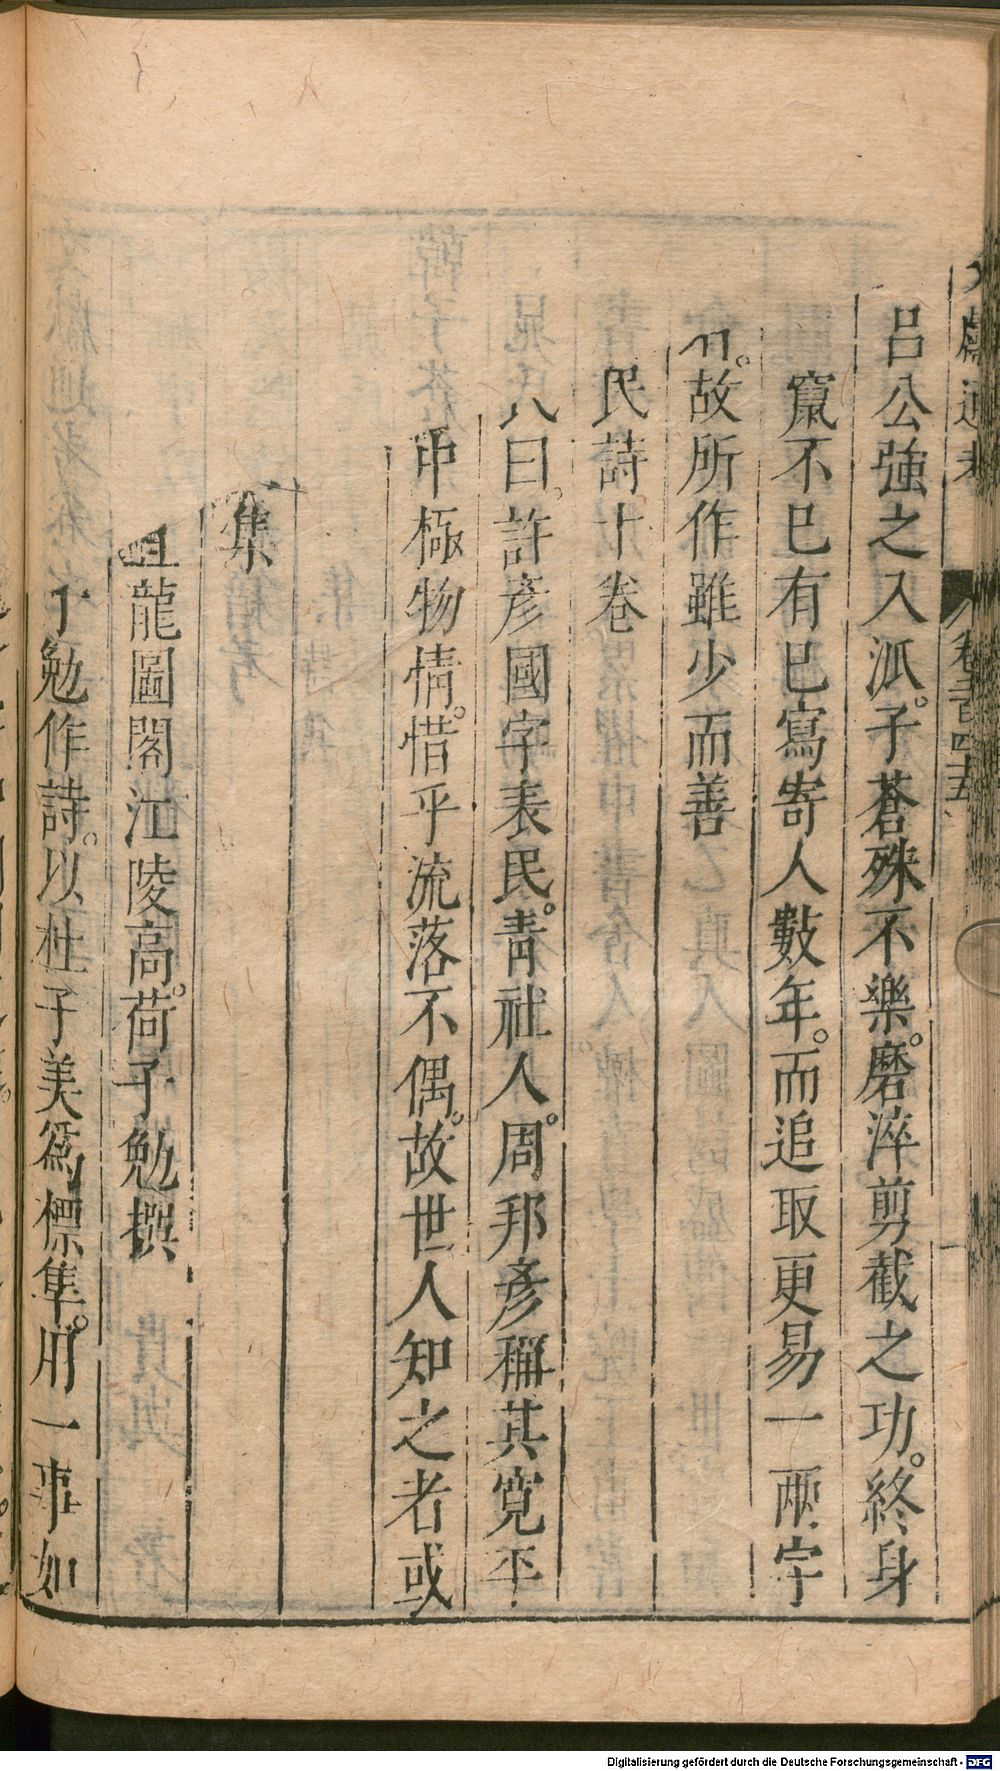 文獻通考 卷二百四十五
呂公強之入派。子蒼殊不樂。磨淬剪截之功。終身
竄不已有已寫寄人數年。而追取更易一兩字
故所作雖少而善
民詩十卷
曰。許彥國字表民。青社人。周邦彥稱其寬平
中極物情。惜乎流落不偶。故世人知之者或
集
龍圖閣江陵高荷子勉撰
子勉作詩。以杜子美爲標準。用一事如
Digitalisierung gefördert durch die Deutsche Forschungsgemeinschaft - DFG